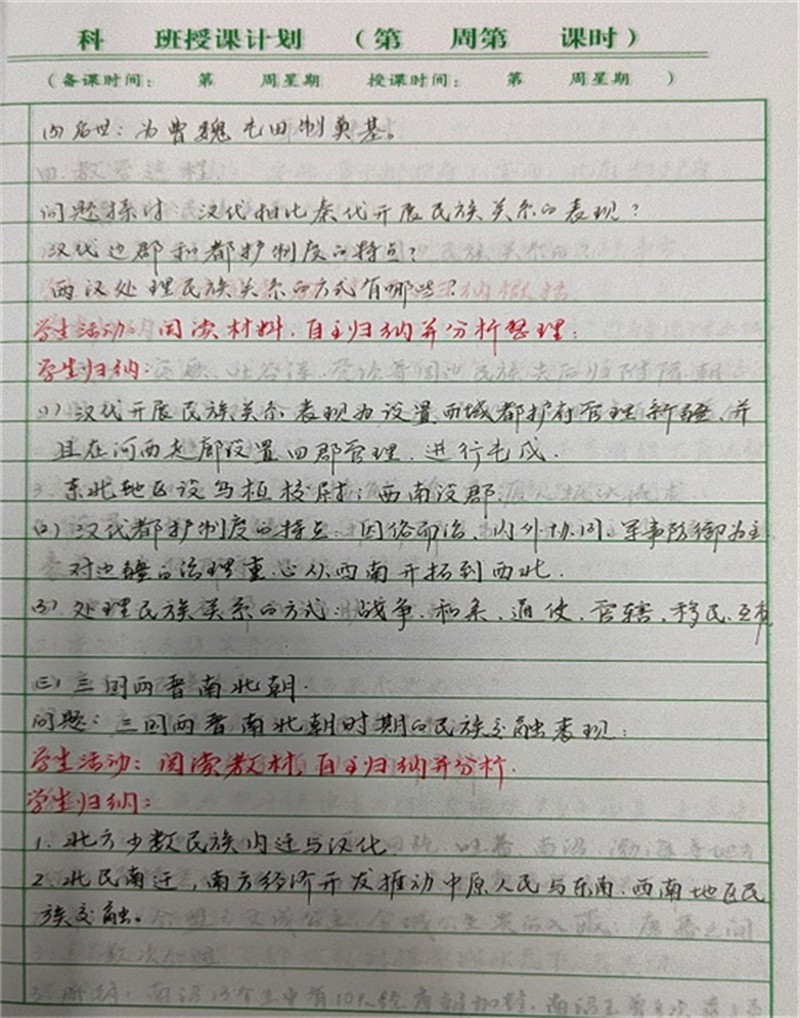 科 班授课计划 （第 周第 课时）
（备课时间： 第 周星期 授课时间： 第 周星期 ）
(4)后世：为曹魏屯田制奠基。
问题探讨 汉代相比秦代开展民族关系的表现？
汉代边郡和都护制度的特点？
两汉处理民族关系的方式有哪些？
学生活动：阅读材料，自主归纳并分析整理：
学生归纳：
(1) 汉代开展民族关系表现为设置西域都护府管理新疆，并
且在河西走廊设置四郡管理，进行屯戍．
东北地区设乌桓校尉；西南设郡．
(2) 汉代都护制度的特点：因俗而治、内外协同、军事防御为主
对边疆的治理重心从西南开拓到西北．
(3) 处理民族关系的方式：战争、和亲、通使、管辖、移民、互市
(三) 三国两晋南北朝．
问题：三国两晋南北朝时期的民族交融表现：
学生活动：阅读教材，自主归纳并分析．
学生归纳：
1. 北方少数民族内迁与汉化
2. 北民南迁，南方经济开发推动中原人民与东南、西南地区民
族交融。